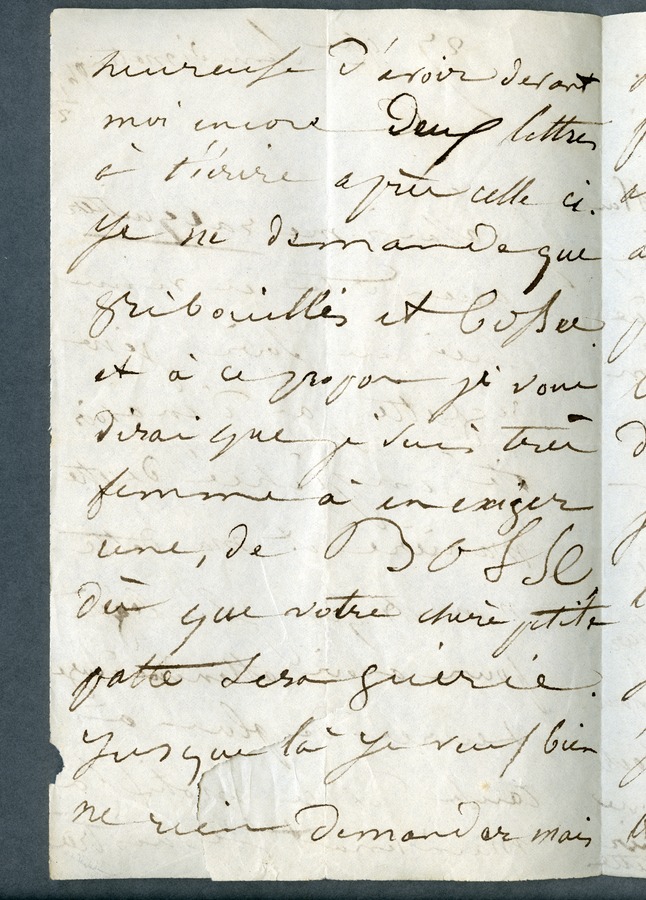 heureuse d'avoir devant
moi encore Deux lettres
à t'écrire après celle ci.
Je ne demande que
gribouillis et bosse
et à ce propos je vous
dirai que je suis très
femme à en exiger
une, de BOSSE
dès que votre chère ptite
patte sera guérie.
Jusque là je veux bien
ne rien demander mais